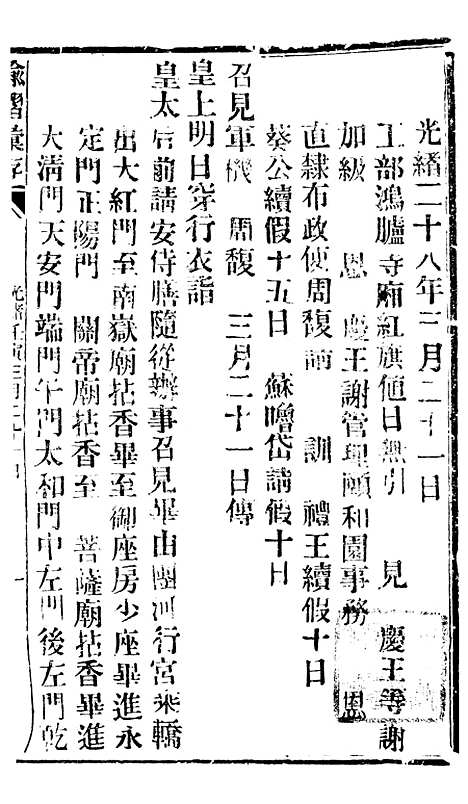 光緒二十八年三月二十一日
工部鴻臚寺廂紅旗值日無引　見　慶王等謝
加級　恩　慶王謝管理頤和園事務　恩
直隸布政使周馥請　訓　禮王續假十日
葵公續假十五日　蘇嚕岱請假十日
召見軍機　周馥　三月二十一日傳
皇上明日穿行衣詣
皇太后前請安侍膳隨從辦事召見畢由團河行宮乘轎
出大紅門至南嶽廟拈香畢至御座房少座畢進永
定門正陽門　關帝廟拈香至　菩薩廟拈香畢進
大淸門天安門端門午門太和門中左門後左門乾
諭摺彙存
光緒壬寅三月二十
一